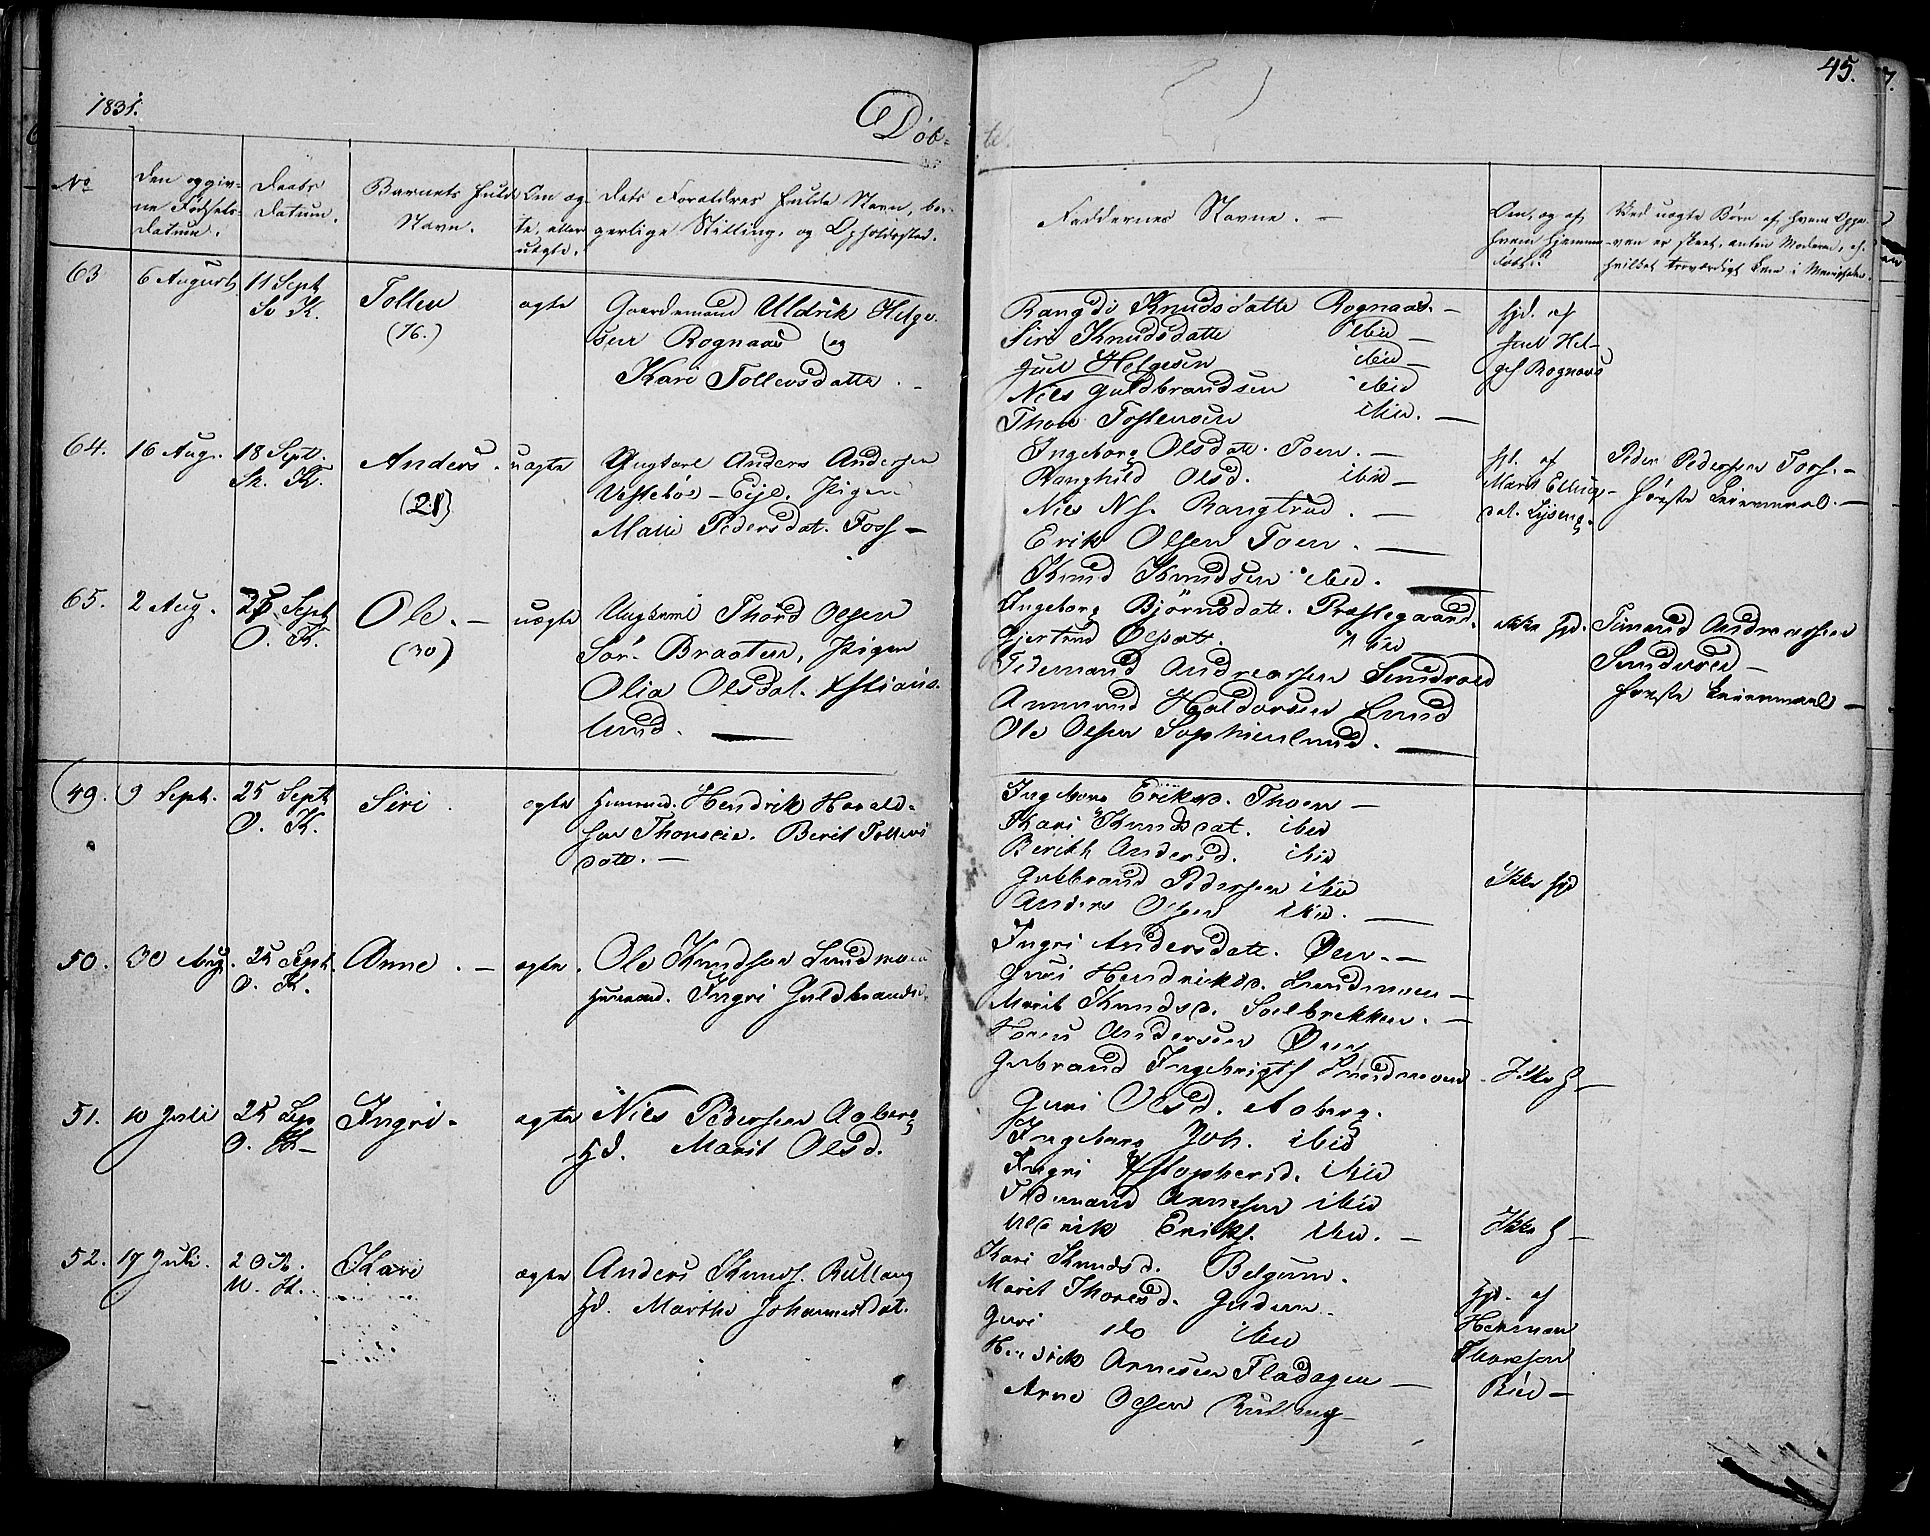 1831.
Døb-
te.
45.
No
Den opgiv-
ne Fødsels-
Datum.
Daabs
Datum.
Barnets fulde
Navn.
Om æg-
te, eller
uægte.
Dets Forældres fulde Navn, bor-
gerlige Stilling, og Opholdssted.
Faddernes Navne. -
Om, og af
hvem hjemme-
døbt.
Ved uægte Børn af hvem Opga-
ven er skeet, enten Moderen, el.
hvilket troværdigt
63
6 August
11 Sept
S. K.
Tollev
(16.)
ægte
Gaardmand Uldrik Helge-
sen Rognaas og
Kari Tollevsdatte. -
Rangdi Knudsdatte Rognaas. -
Siri Knudsdatte ibid -
Juel Helgesen ibid -
Niels Guldbrandsen ibid
Thore Tostensen ibid. -
hjd. af
Juel Hel-
ges Rognaas
64.
16 Aug.
18 Sept.
S. K.
Anders.
(21)
uægte
Ungkarl Anders Andersen
Vestebøe - Eje. Pigen
Mari Pedersdat. Foss -
Ingeborg Olsdat. Toen. -
Ranghild Olsd. ibid -
Niels Ns. Rangstrud. -
Erik Olsen Toen. -
Knud Knudsen ibid. -
hj. af
Marit Elling-
dat. Lyseng.
Peder Pedersen Foss. -
første Leiermaal. -
65.
2 Aug.
25 Sept
O. K.
Ole. -
(30)
uægte
Ungkarl Thord Olsen
Sør-Braaten, Pigen
Olia Olsdat. Xstians-
lund. -
Ingeborg Bjørnsdatt. Præstegaard.
Gjertrud Olsdatt. ibid
Tidemand Andreassen Sundvold
Ammund Haldorsen Lund
Ole Olsen Sophienlund. -
ikke hjd.
Timand Andreassen
Sundvold -
første Leiermaal -
49.
9 Sept.
25 Sept
O. K.
Siri.
ægte
Huusmd. Hendrik Harald-
sen Thoneie. Berit Tollevs
datt. -
Ingeborg Eriksd. Thoen -
Kari Knudsdat. ibid
Berith Andersd. ibid
Gulbrand Pedersen ibid
Anders Olsen ibid. -
Ikke hjd
50.
30 Aug.
25 Sept
O. K.
Anne. -
ægte.
Ole Knudsen Sundmoen
Huusmd. Ingri Guldbrandsd.
Ingri Andersdatt. Øen. -
Guri Hendriksd. Sundmoen -
Marit Knudsd. Soelbrekken. -
Hans Andersen Øen
Gulbrand Ingebrigts Sundmoen
Ikke H -
51.
10 Juli
25 Sep
O. K -
Ingri.
ægte
Niels Pedersen Aaberg
Hd. Marit Olsd.
Guri Olsd. Aaberg.
Ingeborg Joh. ibid
Ingri Xstophersd. ibid
Tidemand Arnesen ibid
Uldrik Eriks. ibid. -
Ikke H -
52.
17 Juli.
2 Oct.
U. K.
Kari
ægte
Anders Knuds. Rullang
Hd. Marthe Johannesdat.
Kari Knudsd. Belgum.
Marit Thoresd. Gulern.
Guri do ibid
Hendrik Arnesen Fladagen -
Arne Olsen Rullang -
hjd. af
Herman
Thoresen
Bue -